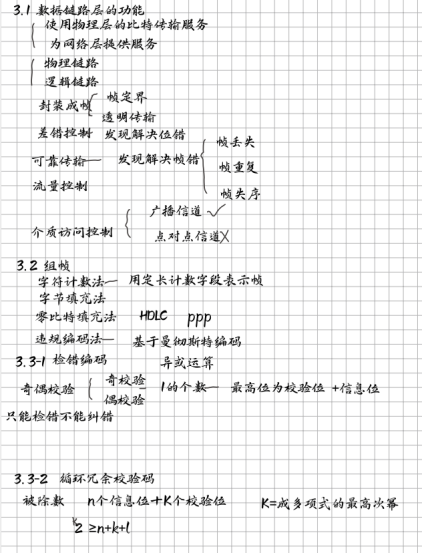 3.1 数据链路层的功能
使用物理层的比特传输服务
为网络层提供服务
物理链路
逻辑链路
封装成帧 帧定界
透明传输
差错控制 发现解决位错
可靠传输— 发现解决帧错 帧丢失
帧重复
帧失序
流量控制
介质访问控制 广播信道✓
点对点信道X
3.2 组帧
字符计数法— 用定长计数字段表示帧
字节填充法
零比特填充法 HDLC ppp
违规编码法— 基于曼彻斯特编码
3.3-1 检错编码 异或运算
奇偶校验 奇校验 1的个数— 最高位为校验位 +信息位
偶校验
只能检错不能纠错
3.3-2 循环冗余校验码
被除数 n个信息位+K个校验位 K=成多项式的最高次幂
2^k ≥n+k+1